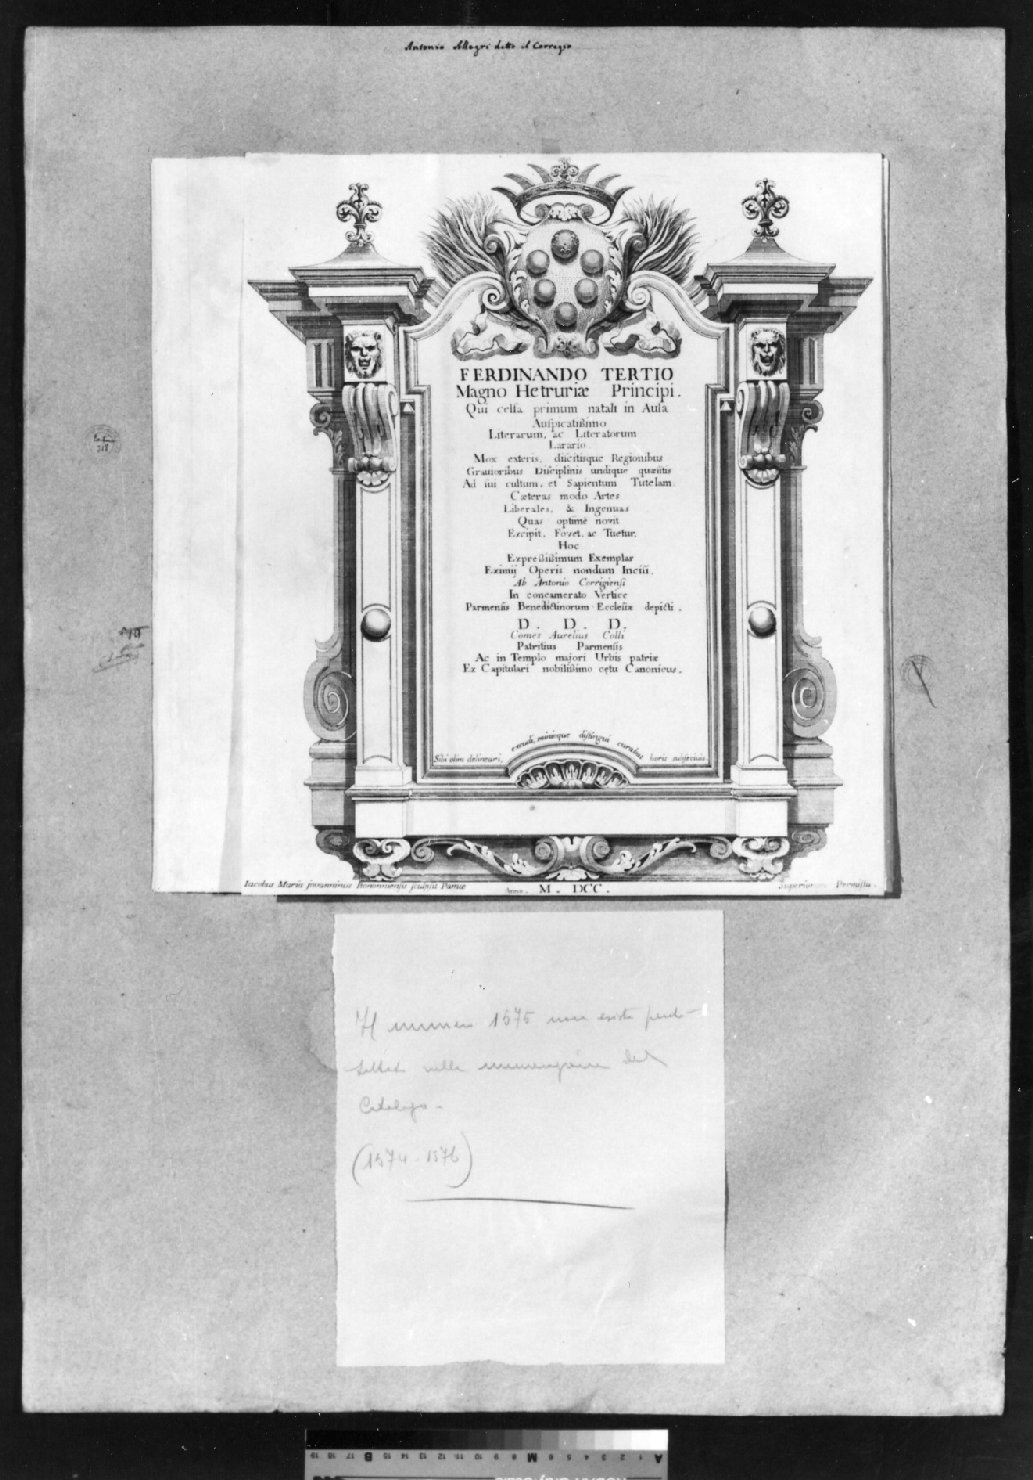 Antonio Allegri detto il Correggio
FERDINANDO TERTIO
Magno Hetruriæ Principi.
Qui celsa primum natali in Aula
Auspicatißimo
Literarum, ac Literatorum
Larario
Mox exteris, dißitisque Regionibus
Gravioribus Disciplinis undique quæsitis
Ad sui cultum, et Sapientum Tutelam.
Cæteras modo Artes
Liberales, & Ingenuas
Quas optimè novit
Excipit, Fovet, ac Tuetur.
Hoc
Expreßißimum Exemplar
Eximij Operis nondum Incisi,
Ab Antonio Corrigiensi
In concamerato Vertice
Parmensis Benedictinorum Ecclesiæ depicti.
D. D. D.
Comes Aurelius Colli
Patritius Parmensis
Ac in Templo maiori Urbis patriæ
Ex Capitulari nobilißimo cętu Canonicus.
Sibi olim delineari, excudi, minioque distingui curabat horis
Iacobus Maria Bononiensis sculpsit Parmæ
Anno. M. DCC.
Superiorum Permißu.
Il numero 1575 non esiste
nella numerazione del
Catalogo.
(1574-1576)